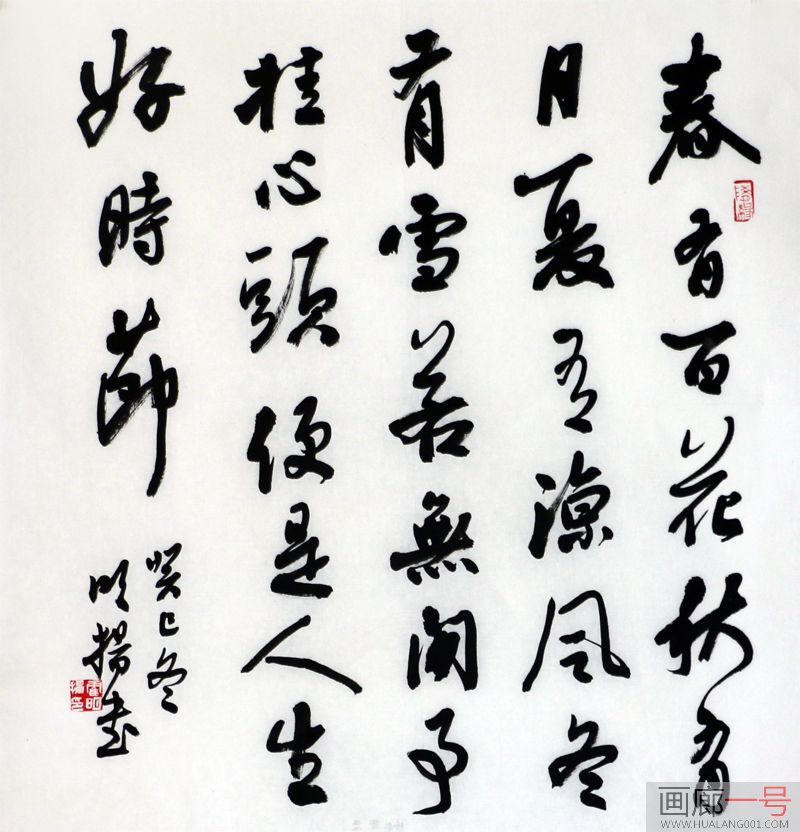 春有百花秋有
月夏有涼風冬
有雪若無閑事
挂心頭便是人生
好時節
癸巳冬
明揚書
画廊一号
WWW.HUALANG001.COM